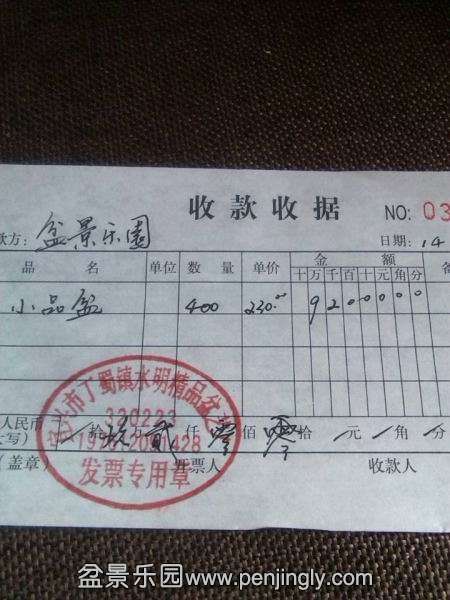 收款收据 NO: 03
款方: 盆景乐园 日期: 14
品 名 单位 数 量 单价 金 额
十 万 千 百 十 元 角 分
小品盆 400 230.00 9 2 0 0 0 0 0
市丁蜀镇水明精品盆
320223
1428
发票专用章
人民币
大写) 拾 玖 万 贰 仟 零 佰 零 拾 元 角 分
(盖章) 开票人 收款人
盆景乐园www.penjingly.com